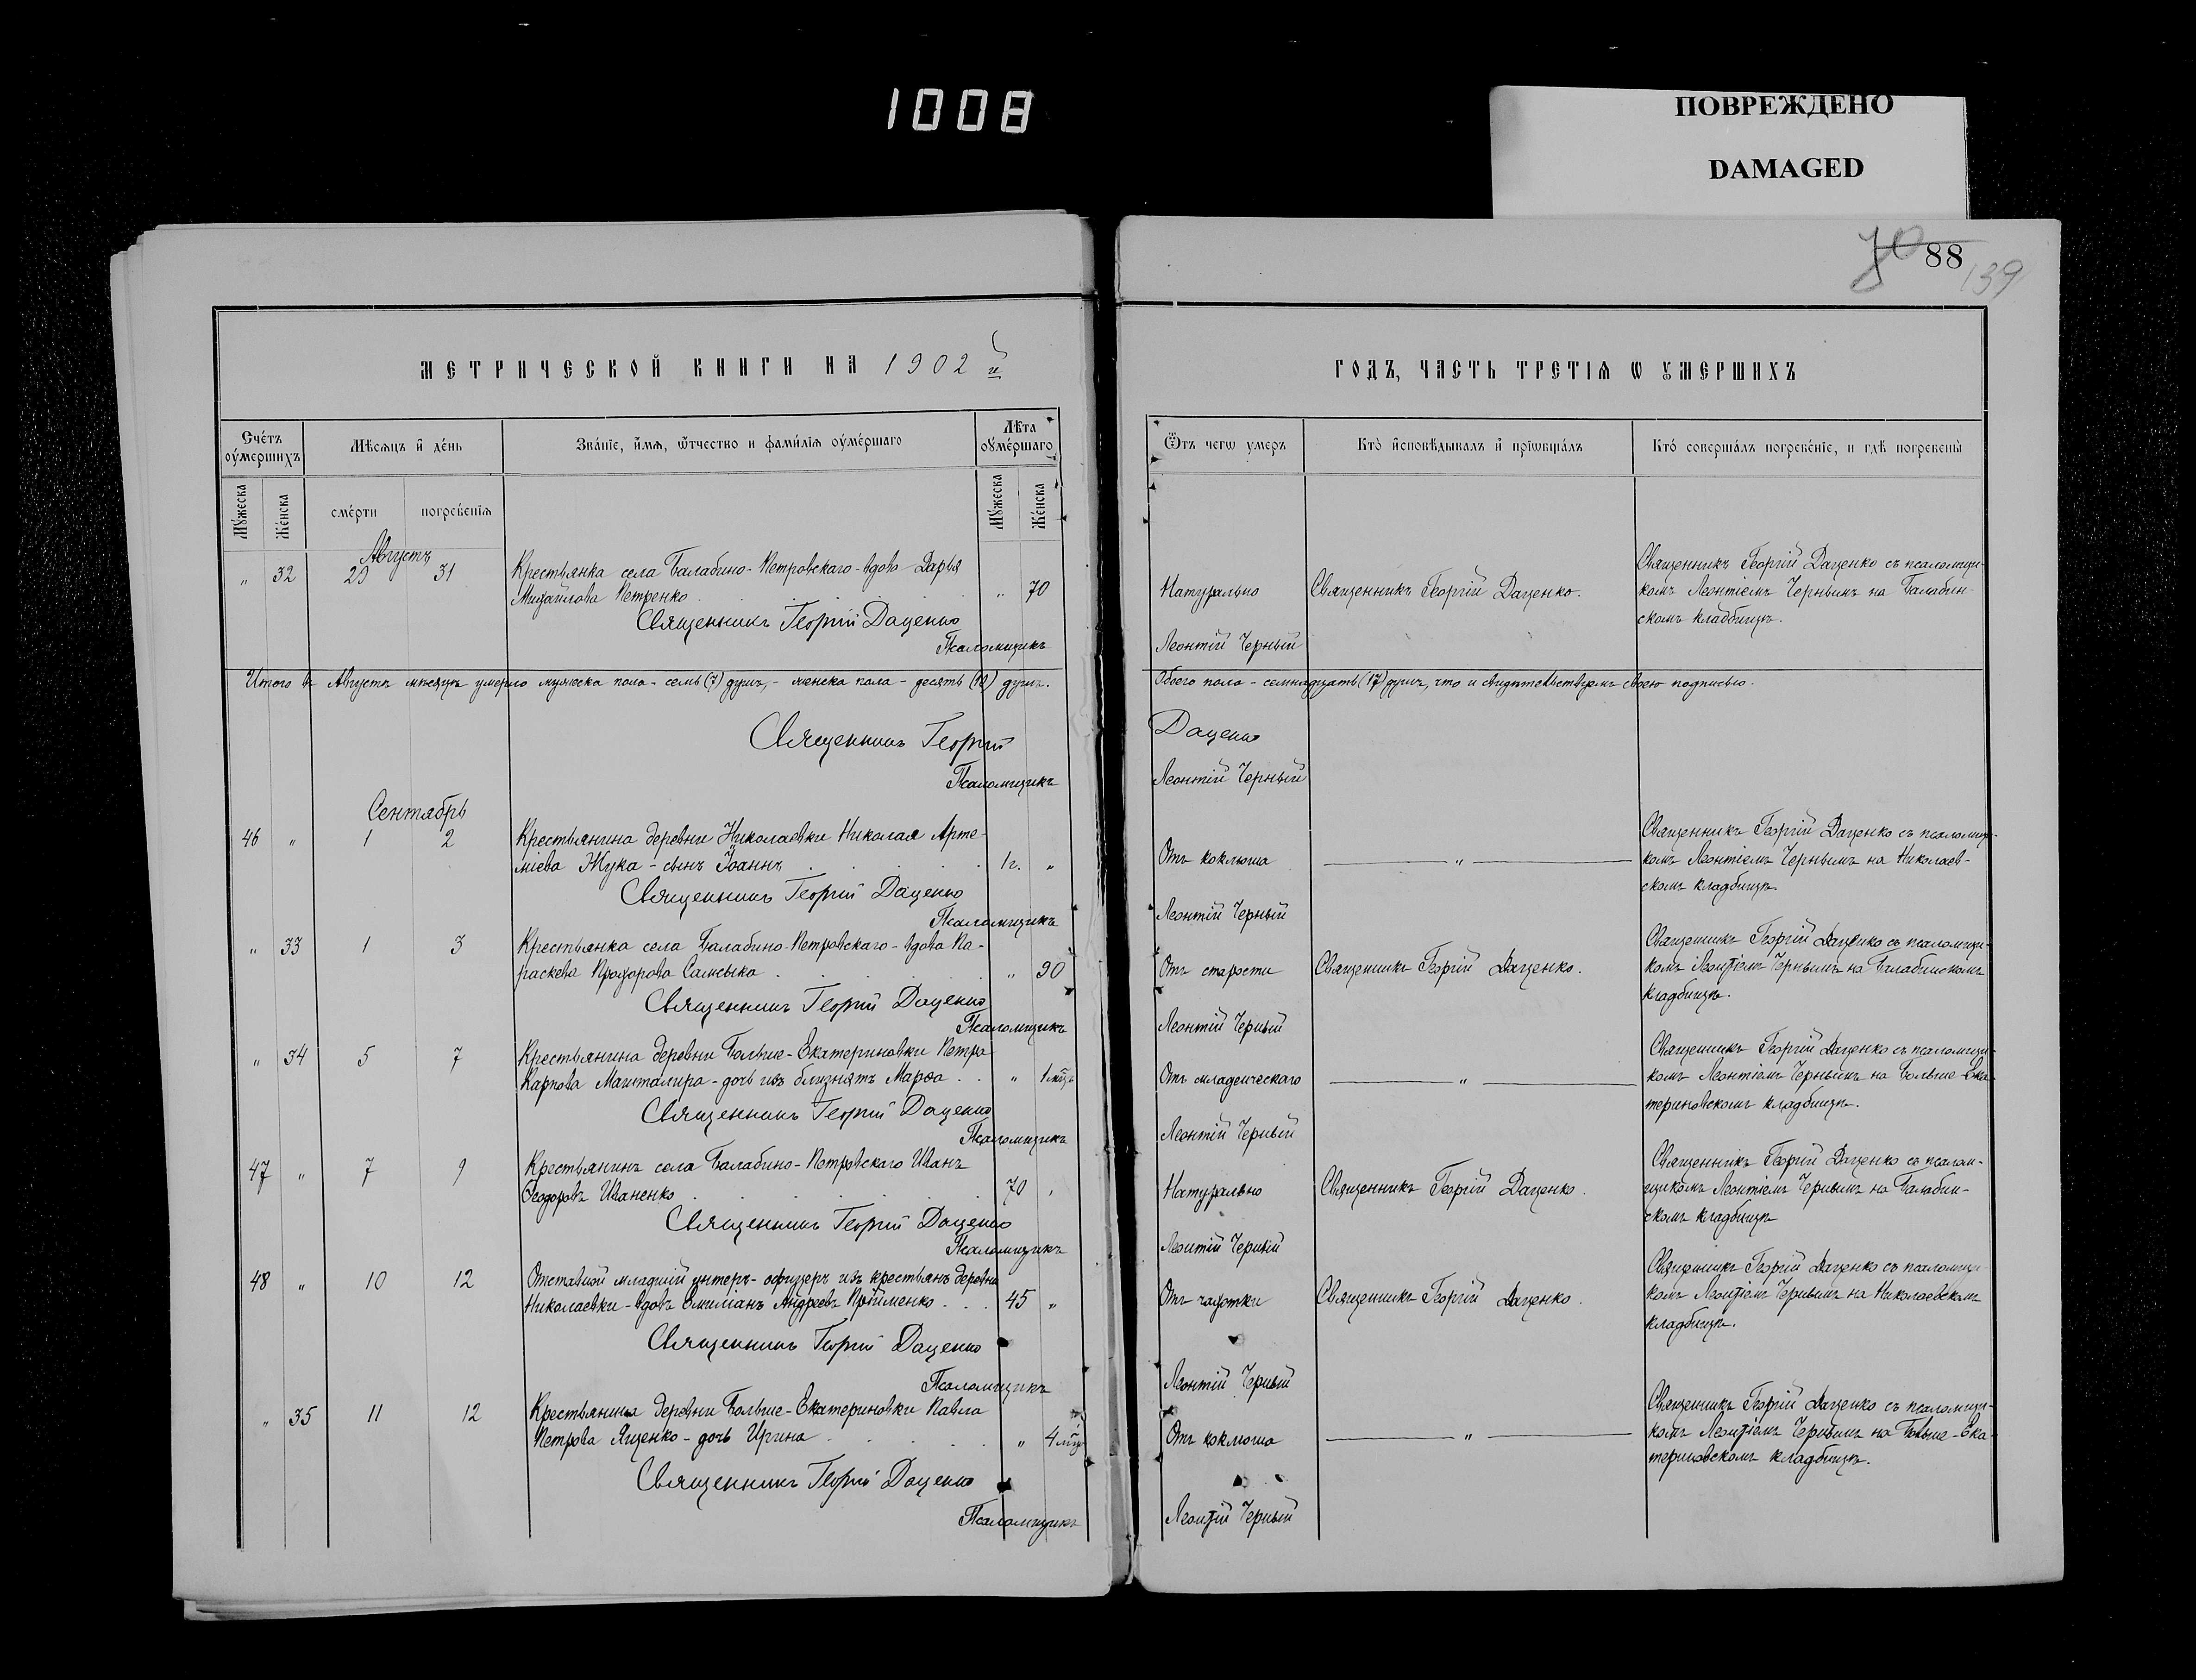 1008
ПОВРЕЖДЕНО
DAMAGED
70 88
139
МЕТРИЧЕСКОЙ КНИГИ НА 1902 й
Счетъ оумершихъ
Мѣсяцъ и день
Званіе, имя, отчество и фамилія оумершаго
Лѣта оумершаго
Мужеска
Женска
смерти
погребенія
Мужеска
Женска
Августъ
" 32 29 31 Крестьянка села Балабино-Петровскаго - вдова Дарья
Михайлова Петренко . . . . . " 70
Священникъ Георгій Даценко
Псаломщикъ
Итого въ Августѣ мѣсяцѣ умерло мужеска пола - семь (7) душъ, - женска пола - десять (10) душъ.
Священникъ Георгій
Псаломщикъ
Сентябрь
46 " 1 2 Крестьянина деревни Николаевки Николая Арте-
міева Жука - сынъ Іоаннъ . . . . 1 г. "
Священникъ Георгій Даценко
Псаломщикъ
" 33 1 3 Крестьянка села Балабино-Петровскаго - вдова Па-
раскева Прохорова Самсыка . . . . " 90
Священникъ Георгій Даценко
Псаломщикъ
" 34 5 7 Крестьянина деревни Больше-Екатериновки Петра
Карпова Машталира - дочь изъ близнятъ Марѳа . . " 1 мѣц.
Священникъ Георгій Даценко
Псаломщикъ
47 " 7 9 Крестьянинъ села Балабино-Петровскаго Иванъ
Ѳеодоровъ Иваненко . . . . . 70 "
Священникъ Георгій Даценко
Псаломщикъ
48 " 10 12 Отставной младшій унтеръ-офицеръ изъ крестьянъ деревни
Николаевки - вдовъ Емиліанъ Андреевъ Пройменко . . . 45 "
Священникъ Георгій Даценко
Псаломщикъ
" 35 11 12 Крестьянина деревни Больше-Екатериновки Павла
Петрова Яценко - дочь Ирина . . . . " 4 мѣц
Священникъ Георгій Даценко
Псаломщикъ
ГОДЪ, ЧАСТЬ ТРЕТІЯ Ѡ УМЕРШИХЪ
Ѿтъ чегѡ умеръ
Кто исповѣдывалъ и пріѡбщалъ
Кто совершалъ погребеніе, и гдѣ погребены
Священникъ Георгій Даценко съ псаломщи-
Натурально Священникъ Георгій Даценко. комъ Леонтіемъ Чернымъ на Балабин-
скомъ кладбищѣ.
Леонтій Черный
Обоего пола - семнадцать (17) душъ, что и свидѣтельствуемъ своею подписью.
Даценко
Леонтій Черный
Священникъ Георгій Даценко съ псаломщи-
Отъ коклюша " комъ Леонтіемъ Чернымъ на Николаев-
скомъ кладбищѣ.
Леонтій Черный
Священникъ Георгій Даценко съ псаломщи-
Отъ старости Священникъ Георгій Даценко. комъ Леонтіемъ Чернымъ на Балабинскомъ
кладбищѣ.
Леонтій Черный
Священникъ Георгій Даценко съ псаломщи-
Отъ младенческаго " комъ Леонтіемъ Чернымъ на Больше-Ека-
териновскомъ кладбищѣ.
Леонтій Черный
Священникъ Георгій Даценко съ псалом-
Натурально Священникъ Георгій Даценко. щикомъ Леонтіемъ Чернымъ на Балабин-
скомъ кладбищѣ
Леонтій Черный
Священникъ Георгій Даценко съ псаломщи-
Отъ чахотки Священникъ Георгій Даценко. комъ Леонтіемъ Чернымъ на Николаевскомъ
кладбищѣ.
Леонтій Черный
Священникъ Георгій Даценко съ псаломщи-
Отъ коклюша " комъ Леонтіемъ Чернымъ на Больше-Ека-
териновскомъ кладбищѣ.
Леонтій Черный